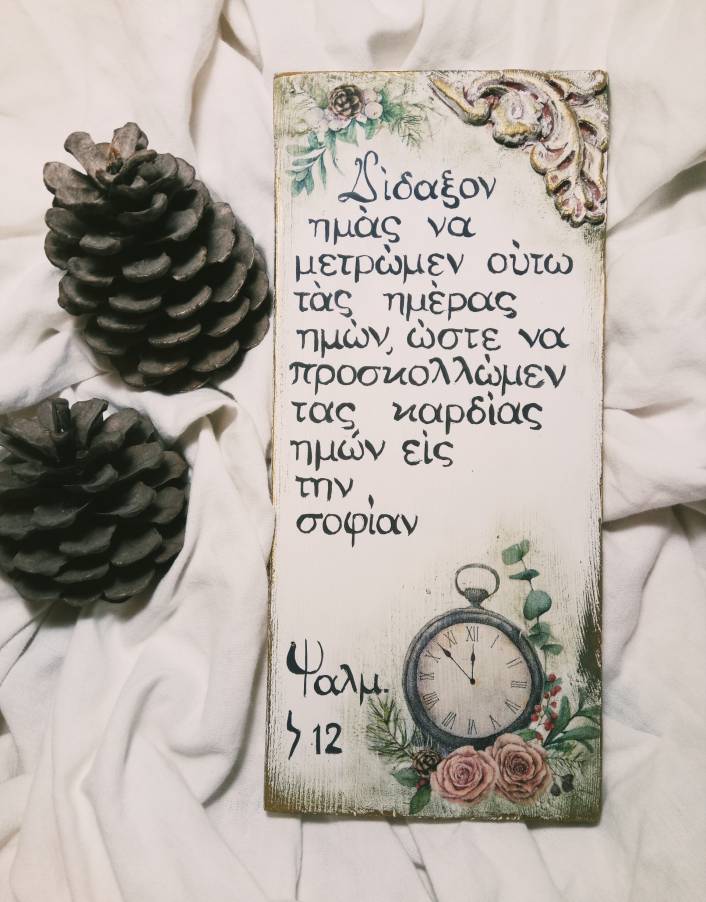 Δὶδαξον
ημὰς να
μετρὼμεν οὺτω
τὰς ημὲρας
ημὼν, ὼστε να
προσκολλὼμεν
τας καρδὶας
ημών εὶς
την
σοφὶαν
Ψαλμ.
ϟ 12
XII I II III IIII V VI VII VIII IX X XI